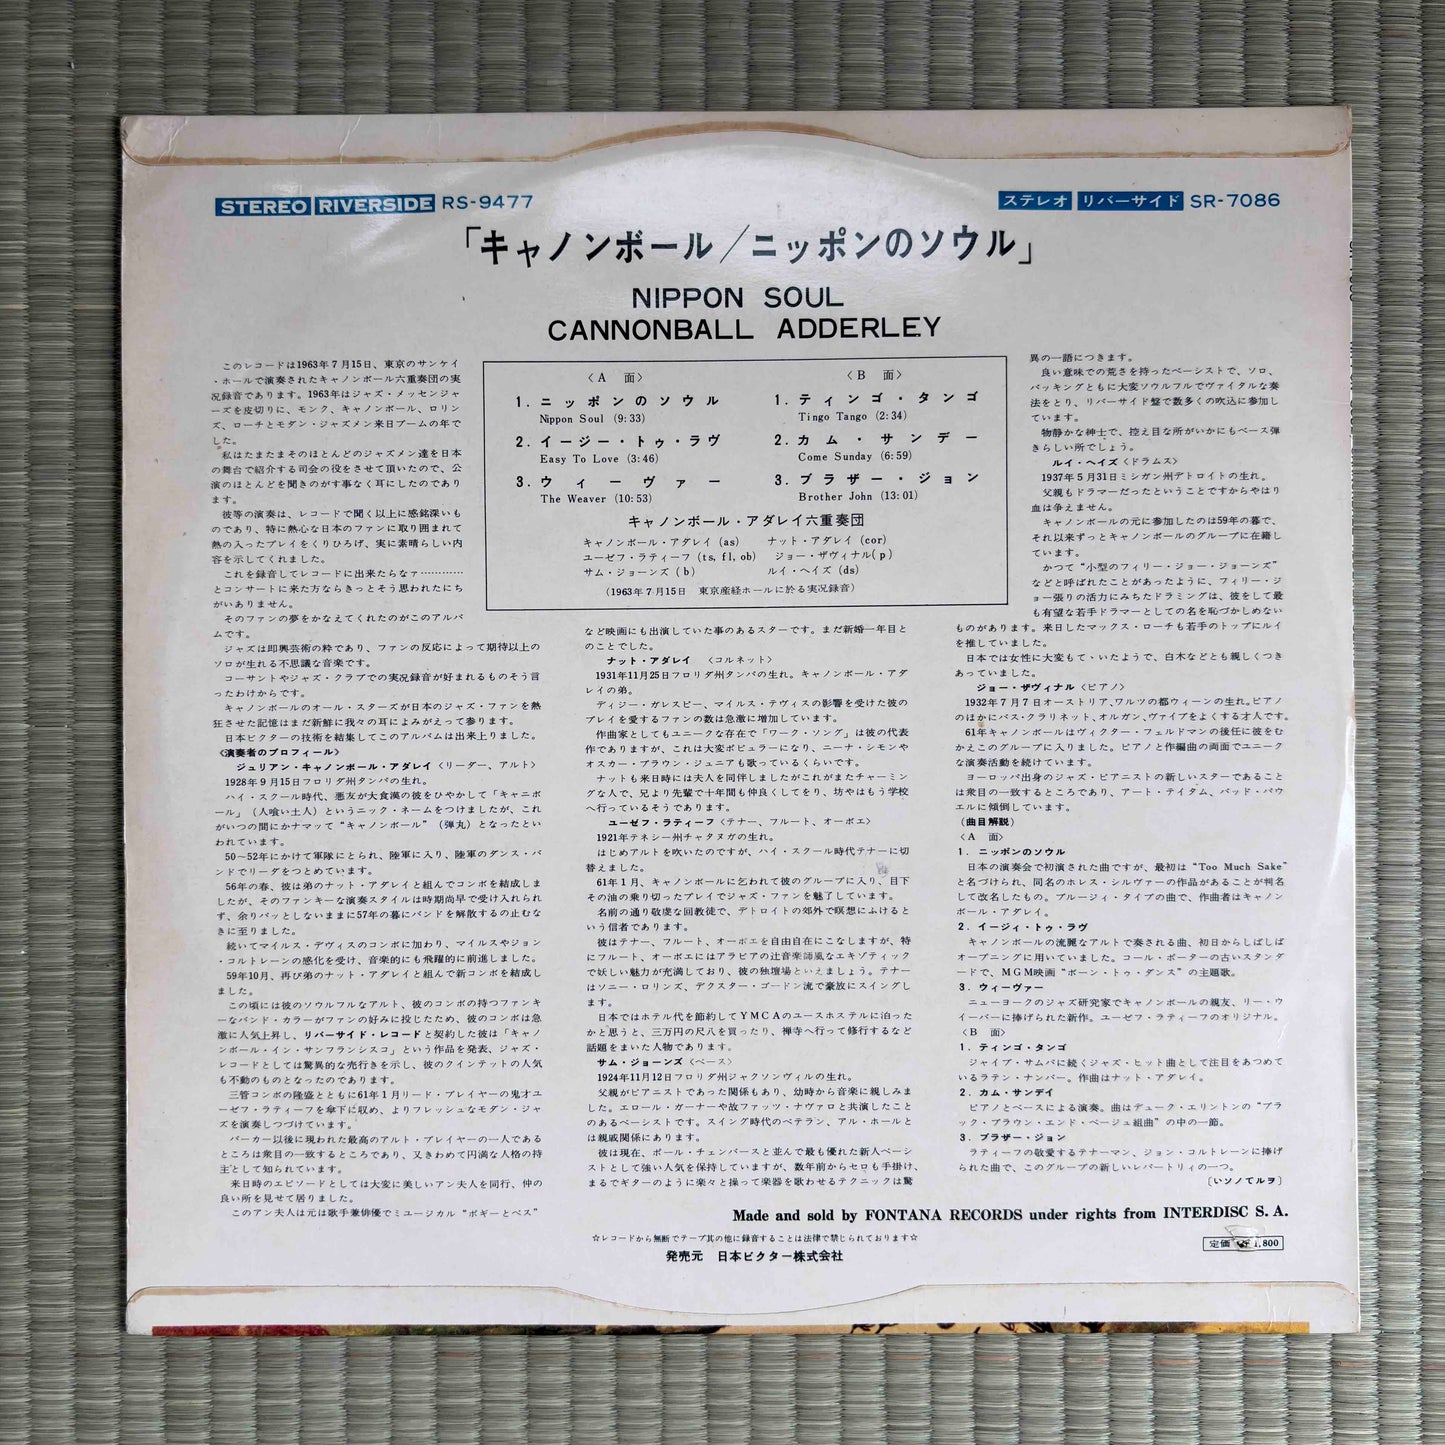 STEREO RIVERSIDE RS-9477
ステレオ リバーサイド SR-7086
「キャノンボール/ニッポンのソウル」
NIPPON SOUL
CANNONBALL ADDERLEY
〈A 面〉
1. ニッポンのソウル
Nippon Soul (9:33)
2. イージー・トゥ・ラヴ
Easy To Love (3:46)
3. ウィーヴァー
The Weaver (10:53)
〈B 面〉
1. ティンゴ・タンゴ
Tingo Tango (2:34)
2. カム・サンデー
Come Sunday (6:59)
3. ブラザー・ジョン
Brother John (13:01)
キャノンボール・アダレイ六重奏団
キャノンボール・アダレイ (as) ナット・アダレイ (cor)
ユーゼフ・ラティーフ (ts, fl, ob) ジョー・ザヴィナル(p)
サム・ジョーンズ (b) ルイ・ヘイズ (ds)
(1963年7月15日 東京産経ホールに於る実況録音)
このレコードは1963年7月15日、東京のサンケイ
・ホールで演奏されたキャノンボール六重奏団の実
況録音であります。1963年はジャズ・メッセンジャ
ーズを皮切りに、モンク、キャノンボール、ロリン
ズ、ローチとモダン・ジャズメン来日ブームの年で
した。
私はたまたまそのほとんどのジャズメン達を日本
の舞台で紹介する司会の役をさせて頂いたので、公
演のほとんどを聞きのがす事なく耳にしたのであり
ます。
彼等の演奏は、レコードで聞く以上に感銘深いも
のであり、特に熱心な日本のファンに取り囲まれて
熱の入ったプレイをくりひろげ、実に素晴らしい内
容を示してくれました。
これを録音してレコードに出来たらなァ…………
とコンサートに来た方ならきっとそう思われたにち
がいありません。
そのファンの夢をかなえてくれたのがこのアルバ
ムです。
ジャズは即興芸術の粋であり、ファンの反応によって期待以上の
ソロが生れる不思議な音楽です。
コーサントやジャズ・クラブでの実況録音が好まれるものそう言
ったわけからです。
キャノンボールのオール・スターズが日本のジャズ・ファンを熱
狂させた記憶はまだ新鮮に我々の耳によみがえって参ります。
日本ビクターの技術を結集してこのアルバムは出来上りました。
《演奏者のプロフィール》
ジュリアン・キャノンボール・アダレイ〈リーダー、アルト〉
1928年9月15日フロリダ州タンパの生れ。
ハイ・スクール時代、悪友が大食漢の彼をひやかして「キャニボ
ール」(人喰い土人)というニック・ネームをつけましたが、これ
がいつの間にかナマッて“キャノンボール”(弾丸)となったとい
われています。
50〜52年にかけて軍隊にとられ、陸軍に入り、陸軍のダンス・バ
ンドでリーダをつとめています。
56年の春、彼は弟のナット・アダレイと組んでコンボを結成しま
したが、そのファンキーな演奏スタイルは時期尚早で受け入れられ
ず、余りパッとしないままに57年の暮にバンドを解散するの止むな
きに至りました。
続いてマイルス・デヴィスのコンボに加わり、マイルスやジョン
・コルトレーンの感化を受け、音楽的にも飛躍的に前進しました。
59年10月、再び弟のナット・アダレイと組んで新コンボを結成し
ました。
この頃には彼のソウルフルなアルト、彼のコンボの持つファンキ
ーなバンド・カラーがファンの好みに投じたため、彼のコンボは急
激に人気上昇し、リバーサイド・レコードと契約した彼は「キャノ
ンボール・イン・サンフランシスコ」という作品を発表、ジャズ・
レコードとしては驚異的な売行きを示し、彼のクインテットの人気
も不動のものとなったのであります。
三管コンボの隆盛とともに61年1月リード・プレイヤーの鬼才ユ
ーゼフ・ラティーフを傘下に収め、よりフレッシュなモダン・ジャ
ズを演奏しつづけています。
パーカー以後に現われた最高のアルト・プレイヤーの一人である
ところは衆目の一致するところであり、又きわめて円満な人格の持
主として知られています。
来日時のエピソードとしては大変に美しいアン夫人を同行、仲の
良い所を見せて居りました。
このアン夫人は元は歌手兼俳優でミュージカル“ボギーとベス”
など映画にも出演していた事のあるスターです。まだ新婚一年目と
のことでした。
ナット・アダレイ 〈コルネット〉
1931年11月25日フロリダ州タンパの生れ。キャノンボール・アダ
レイの弟。
ディジー・ガレスピー、マイルス・テヴィスの影響を受けた彼の
プレイを愛するファンの数は急激に増加しています。
作曲家としてもユニークな存在で「ワーク・ソング」は彼の代表
作でありますが、これは大変ポピュラーになり、ニーナ・シモンや
オスカー・ブラウン・ジュニアも歌っているくらいです。
ナットも来日時には夫人を同伴しましたがこれがまたチャーミン
グな人で、兄より先輩で十年間も仲良くしてをり、坊やはもう学校
へ行っているそうであります。
ユーゼフ・ラティーフ〈テナー、フルート、オーボエ〉
1921年テネシー州チャタヌガの生れ。
はじめアルトを吹いたのですが、ハイ・スクール時代テナーに切
替えました。
61年1月、キャノンボールに乞われて彼のグループに入り、目下
その油の乗り切ったプレイでジャズ・ファンを魅了しています。
名前の通り敬虔な回教徒で、デトロイトの郊外で瞑想にふけると
いう信者であります。
彼はテナー、フルート、オーボエを自由自在にこなしますが、特
にフルート、オーボエにはアラビアの辻音楽師風なエキゾティック
で妖しい魅力が充満しており、彼の独壇場といえましょう。テナー
はソニー・ロリンズ、デクスター・ゴードン流で豪放にスイングし
ます。
日本ではホテル代を節約してYMCAのユースホステルに泊った
かと思うと、三万円の尺八を買ったり、禅寺へ行って修行するなど
話題をまいた人物であります。
サム・ジョーンズ〈ベース〉
1924年11月12日フロリダ州ジャクソンヴィルの生れ。
父親がピアニストであった関係もあり、幼時から音楽に親しみま
した。エロール・ガーナーや故ファッツ・ナヴァロと共演したこと
のあるベーシストです。スイング時代のベテラン、アル・ホールと
は親戚関係にあります。
彼は現在、ポール・チェンバースと並んで最も優れた新人ベーシ
ストとして強い人気を保持していますが、数年前からセロも手掛け、
まるでギターのように楽々と操って楽器を歌わせるテクニックは驚
異の一語につきます。
良い意味での荒さを持ったベーシストで、ソロ、
バッキングともに大変ソウルフルでヴァイタルな奏
法をとり、リバーサイド盤で数多くの吹込に参加し
ています。
物静かな紳士で、控え目な所がいかにもベース弾
きらしい所でしょう。
ルイ・ヘイズ〈ドラムス〉
1937年5月31日ミシガン州デトロイトの生れ。
父親もドラマーだったということですからやはり
血は争えません。
キャノンボールの元に参加したのは59年の暮で、
それ以来ずっとキャノンボールのグループに在籍し
ています。
かつて“小型のフィリー・ジョー・ジョーンズ”
などと呼ばれたことがあったように、フィリー・ジ
ョー張りの活力にみちたドラミングは、彼をして最
も有望な若手ドラマーとしての名を恥づかしめない
ものがあります。来日したマックス・ローチも若手のトップにルイ
を推していました。
日本では女性に大変もて・いたようで、白木などとも親しくつき
あっていました。
ジョー・ザヴィナル〈ピアノ〉
1932年7月7日オーストリア、ワルツの都ウィーンの生れ。ピアノ
のほかにバス・クラリネット、オルガン、ヴァイブをよくする才人です。
61年キャノンボールはヴィクター・フェルドマンの後任に彼をむ
かえこのグループに入りました。ピアノと作編曲の両面でユニーク
な演奏活動を続けています。
ヨーロッパ出身のジャズ・ピアニストの新しいスターであること
は衆目の一致するところであり、アート・テイタム、バッド・パウ
エルに傾倒しています。
(曲目解説)
〈A 面〉
1. ニッポンのソウル
日本の演奏会で初演された曲ですが、最初は“Too Much Sake”
と名づけられ、同名のホレス・シルヴァーの作品があることが判名
して改名したもの。ブルージィ・タイプの曲で、作曲者はキャノン
ボール・アダレイ。
2. イージィ・トゥ・ラヴ
キャノンボールの流麗なアルトで奏される曲、初日からしばしば
オープニングに用いていました。コール・ポーターの古いスタンダ
ードで、MGM映画“ボーン・トゥ・ダンス”の主題歌。
3. ウィーヴァー
ニューヨークのジャズ研究家でキャノンボールの親友、リー・ウ
イーバーに捧げられた新作。ユーゼフ・ラティーフのオリジナル。
〈B 面〉
1. ティンゴ・タンゴ
ジャイブ・サムバに続くジャズ・ヒット曲として注目をあつめて
いるラテン・ナンバー。作曲はナット・アダレイ。
2. カム・サンデイ
ピアノとベースによる演奏。曲はデューク・エリントンの“ブラ
ック・ブラウン・エンド・ベージュ組曲”の中の一節。
3. ブラザー・ジョン
ラティーフの敬愛するテナーマン、ジョン・コルトレーンに捧げ
られた曲で、このグループの新しいレパートリィの一つ。
〔いソノてルヲ〕
Made and sold by FONTANA RECORDS under rights from INTERDISC S. A.
☆レコードから無断でテープ其の他に録音することは法律で禁じられております☆
発売元 日本ビクター株式会社
定価 1,800